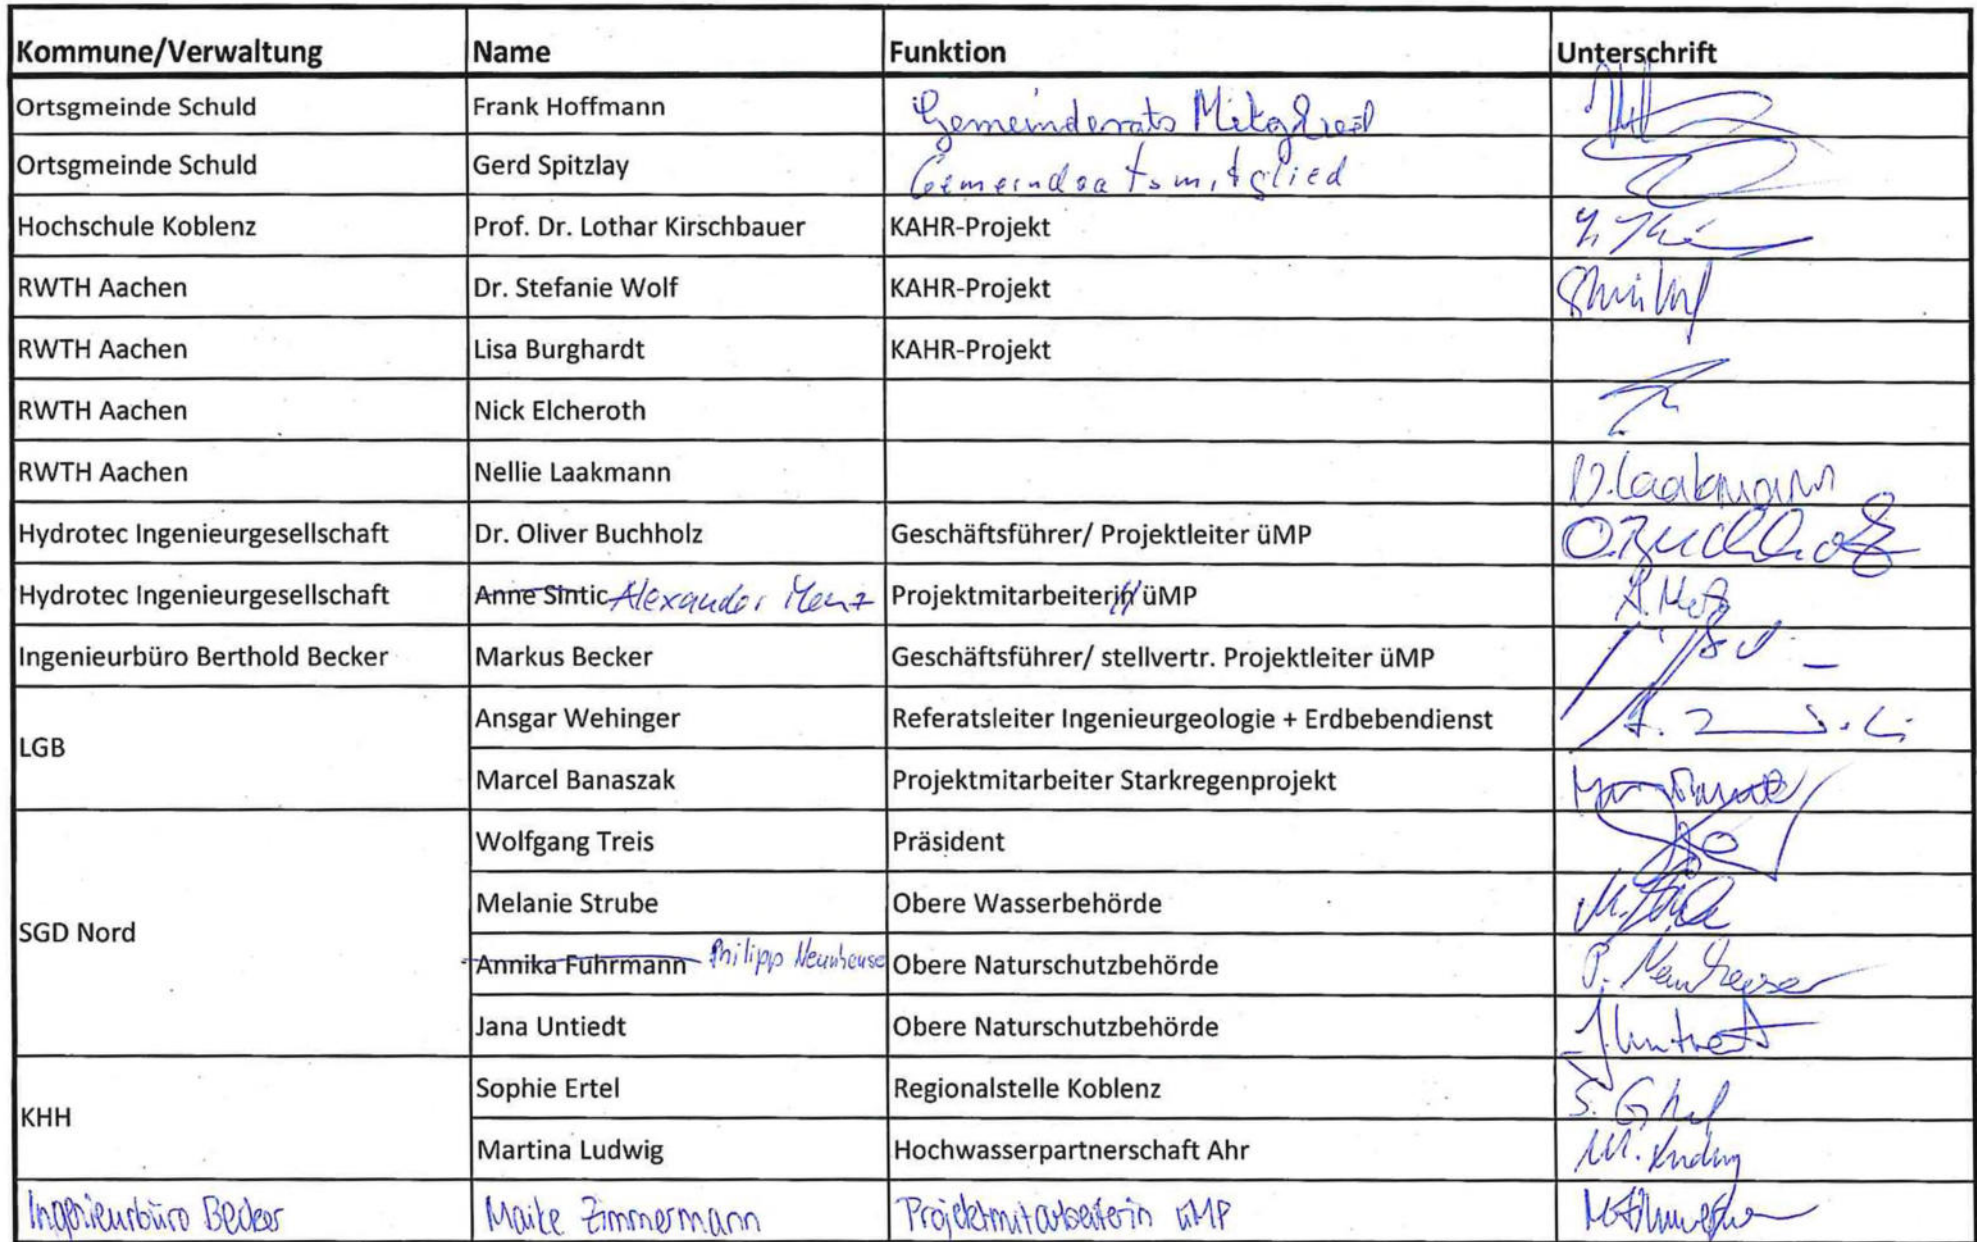 Kommune/Verwaltung Name Funktion Unterschrift
Ortsgmeinde Schuld Frank Hoffmann Gemeinderats Mitglied
Ortsgmeinde Schuld Gerd Spitzlay Gemeindratsmitglied
Hochschule Koblenz Prof. Dr. Lothar Kirschbauer KAHR-Projekt
RWTH Aachen Dr. Stefanie Wolf KAHR-Projekt
RWTH Aachen Lisa Burghardt KAHR-Projekt
RWTH Aachen Nick Elcheroth
RWTH Aachen Nellie Laakmann N. Laakmann
Hydrotec Ingenieurgesellschaft Dr. Oliver Buchholz Geschäftsführer/ Projektleiter üMP O. Buchholz
Hydrotec Ingenieurgesellschaft Anne Sintic Alexander Menz Projektmitarbeiterin üMP
Ingenieurbüro Berthold Becker Markus Becker Geschäftsführer/ stellvertr. Projektleiter üMP
LGB Ansgar Wehinger Referatsleiter Ingenieurgeologie + Erdbebendienst
Marcel Banaszak Projektmitarbeiter Starkregenprojekt
SGD Nord Wolfgang Treis Präsident
Melanie Strube Obere Wasserbehörde
Annika Fuhrmann Philipp Neunheuser Obere Naturschutzbehörde P. Neunheuser
Jana Untiedt Obere Naturschutzbehörde J. Untiedt
KHH Sophie Ertel Regionalstelle Koblenz
Martina Ludwig Hochwasserpartnerschaft Ahr M. Ludwig
Ingenieurbüro Becker Maike Zimmermann Projektmitarbeiterin üMP